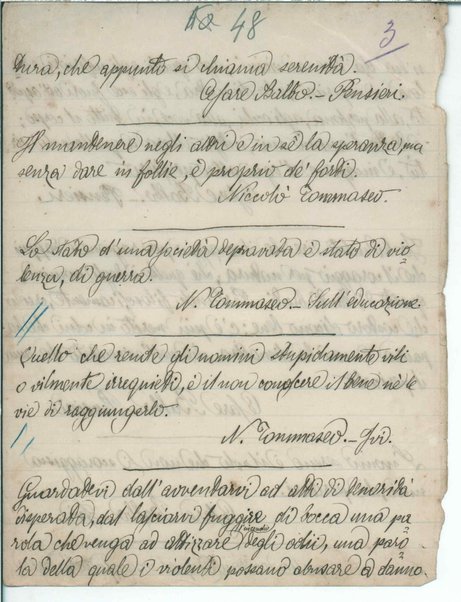 No 48
3
dura, che appunto si chiama serenità.
Cesare Balbo. - Pensieri.
Il mantenere negli altri e in sè la speranza, ma
senza dare in follie, è proprio de' forti.
Niccolò Tommaseo.
Lo stato d'una società depravata è stato di vio
lenza, di guerra.
N. Tommaseo - Sull'educazione.
Quello che rende gli uomini stupidamente vili
o vilmente irrequieti, è il non conoscere il bene nè le
vie di raggiungerlo.
N. Tommaseo. - Ivi.
Guardatevi dall'avventarvi ad atti di temerità
disperata, dal lasciarvi fuggire di bocca una pa
rola che venga ad attizzare degli odii, una paro
la della quale i violenti possano abusare a danno